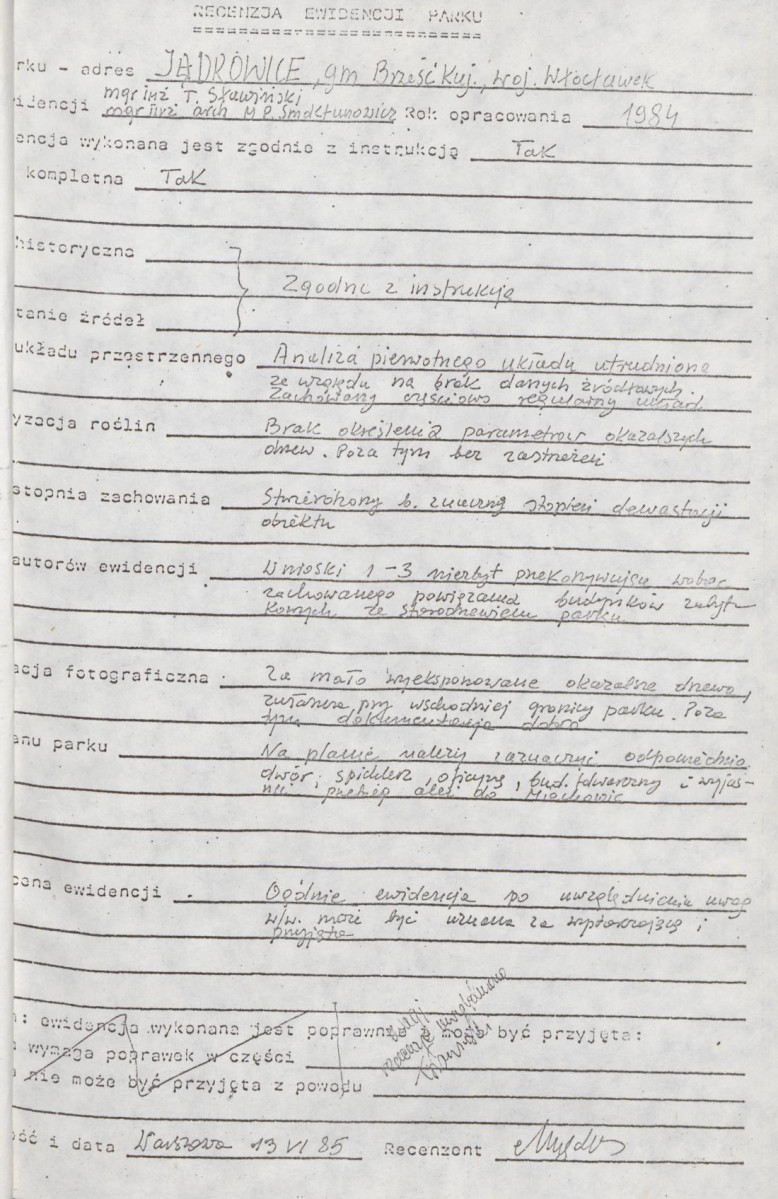 RECENZJA EWIDENCJI PARKU
rku - adres JĄDROWICE, gm Brześć Kuj., woj. Włocławek
mgr inż T. Sławiński
idencji mgr inż arch M.P. Rok opracowania 1984
encja wykonana jest zgodnie z instrukcją Tak
kompletna Tak
historyczna
Zgodne z instrukcją
tanie źródeł
układu przestrzennego Analiza pierwotnego układu utrudniona
ze względu na brak danych źródłowych.
Zachowany częściowo regularny układ
yzacja roślin Brak określenia parametrów okazalszych
drzew. Poza tym bez zastrzeżeń
stopnia zachowania Stwierdzony b. znaczny stopień dewastacji
obiektu
autorów ewidencji Wnioski 1-3 niezbyt przekonywujące wobec
zachowanego powiązania budynków zabyt-
kowych ze starodrzewiem parku
acja fotograficzna Za mało wyeksponowane okazalsze drzewa,
zwłaszcza przy wschodniej granicy parku. Poza
tym dokumentacja dobra
anu parku Na planie należy zaznaczyć odpowiednio
dwór, spichlerz, oficynę, bud. dworczny i wyjaś-
nić przebieg alei do
cena ewidencji Ogólnie ewidencja po uwzględnieniu uwag
w/w. może być uznana za wystarczającą i
przyjęta
: ewidencja wykonana jest poprawnie i może być przyjęta:
uwagi
wymaga poprawek w części
nie może być przyjęta z powodu
ość i data Warszawa 13 VI 85 Recenzent